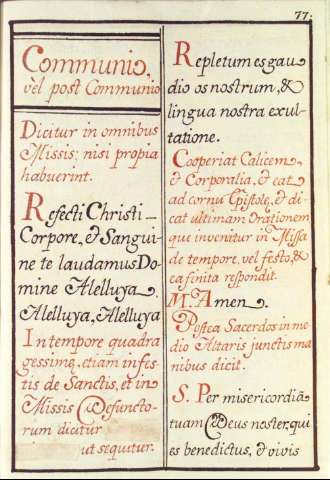 77.
Communio,
vèl post Communio
Dicitur in omnibus
Missis; nisi propia
habuerint.
Refecti Christi
Corpore, & Sangui-
ne te laudamus Do-
mine Alelluya.
Alelluya, Alelluya
In tempore quadra
gessime, etiam in fes-
tis de Sanctis, et in
Missis Defuncto-
rum dicitur
ut sequitur.
Repletum es gau
dio os nostrum, &
lingua nostra exul-
tatione.
Cooperiat Calicem,
& Corporalia, & eat
ad cornu Epistole, & di-
cat ultimam Orationem
que invenitur in Missa
de tempore, vel festo, &
ea finita respondit
M. Amen.
Postea Sacerdos in me
dio Altaris junctis ma
nibus dicit.
S. Per misericordiã
tuam Deus noster, qui
es benedictus, & vivis